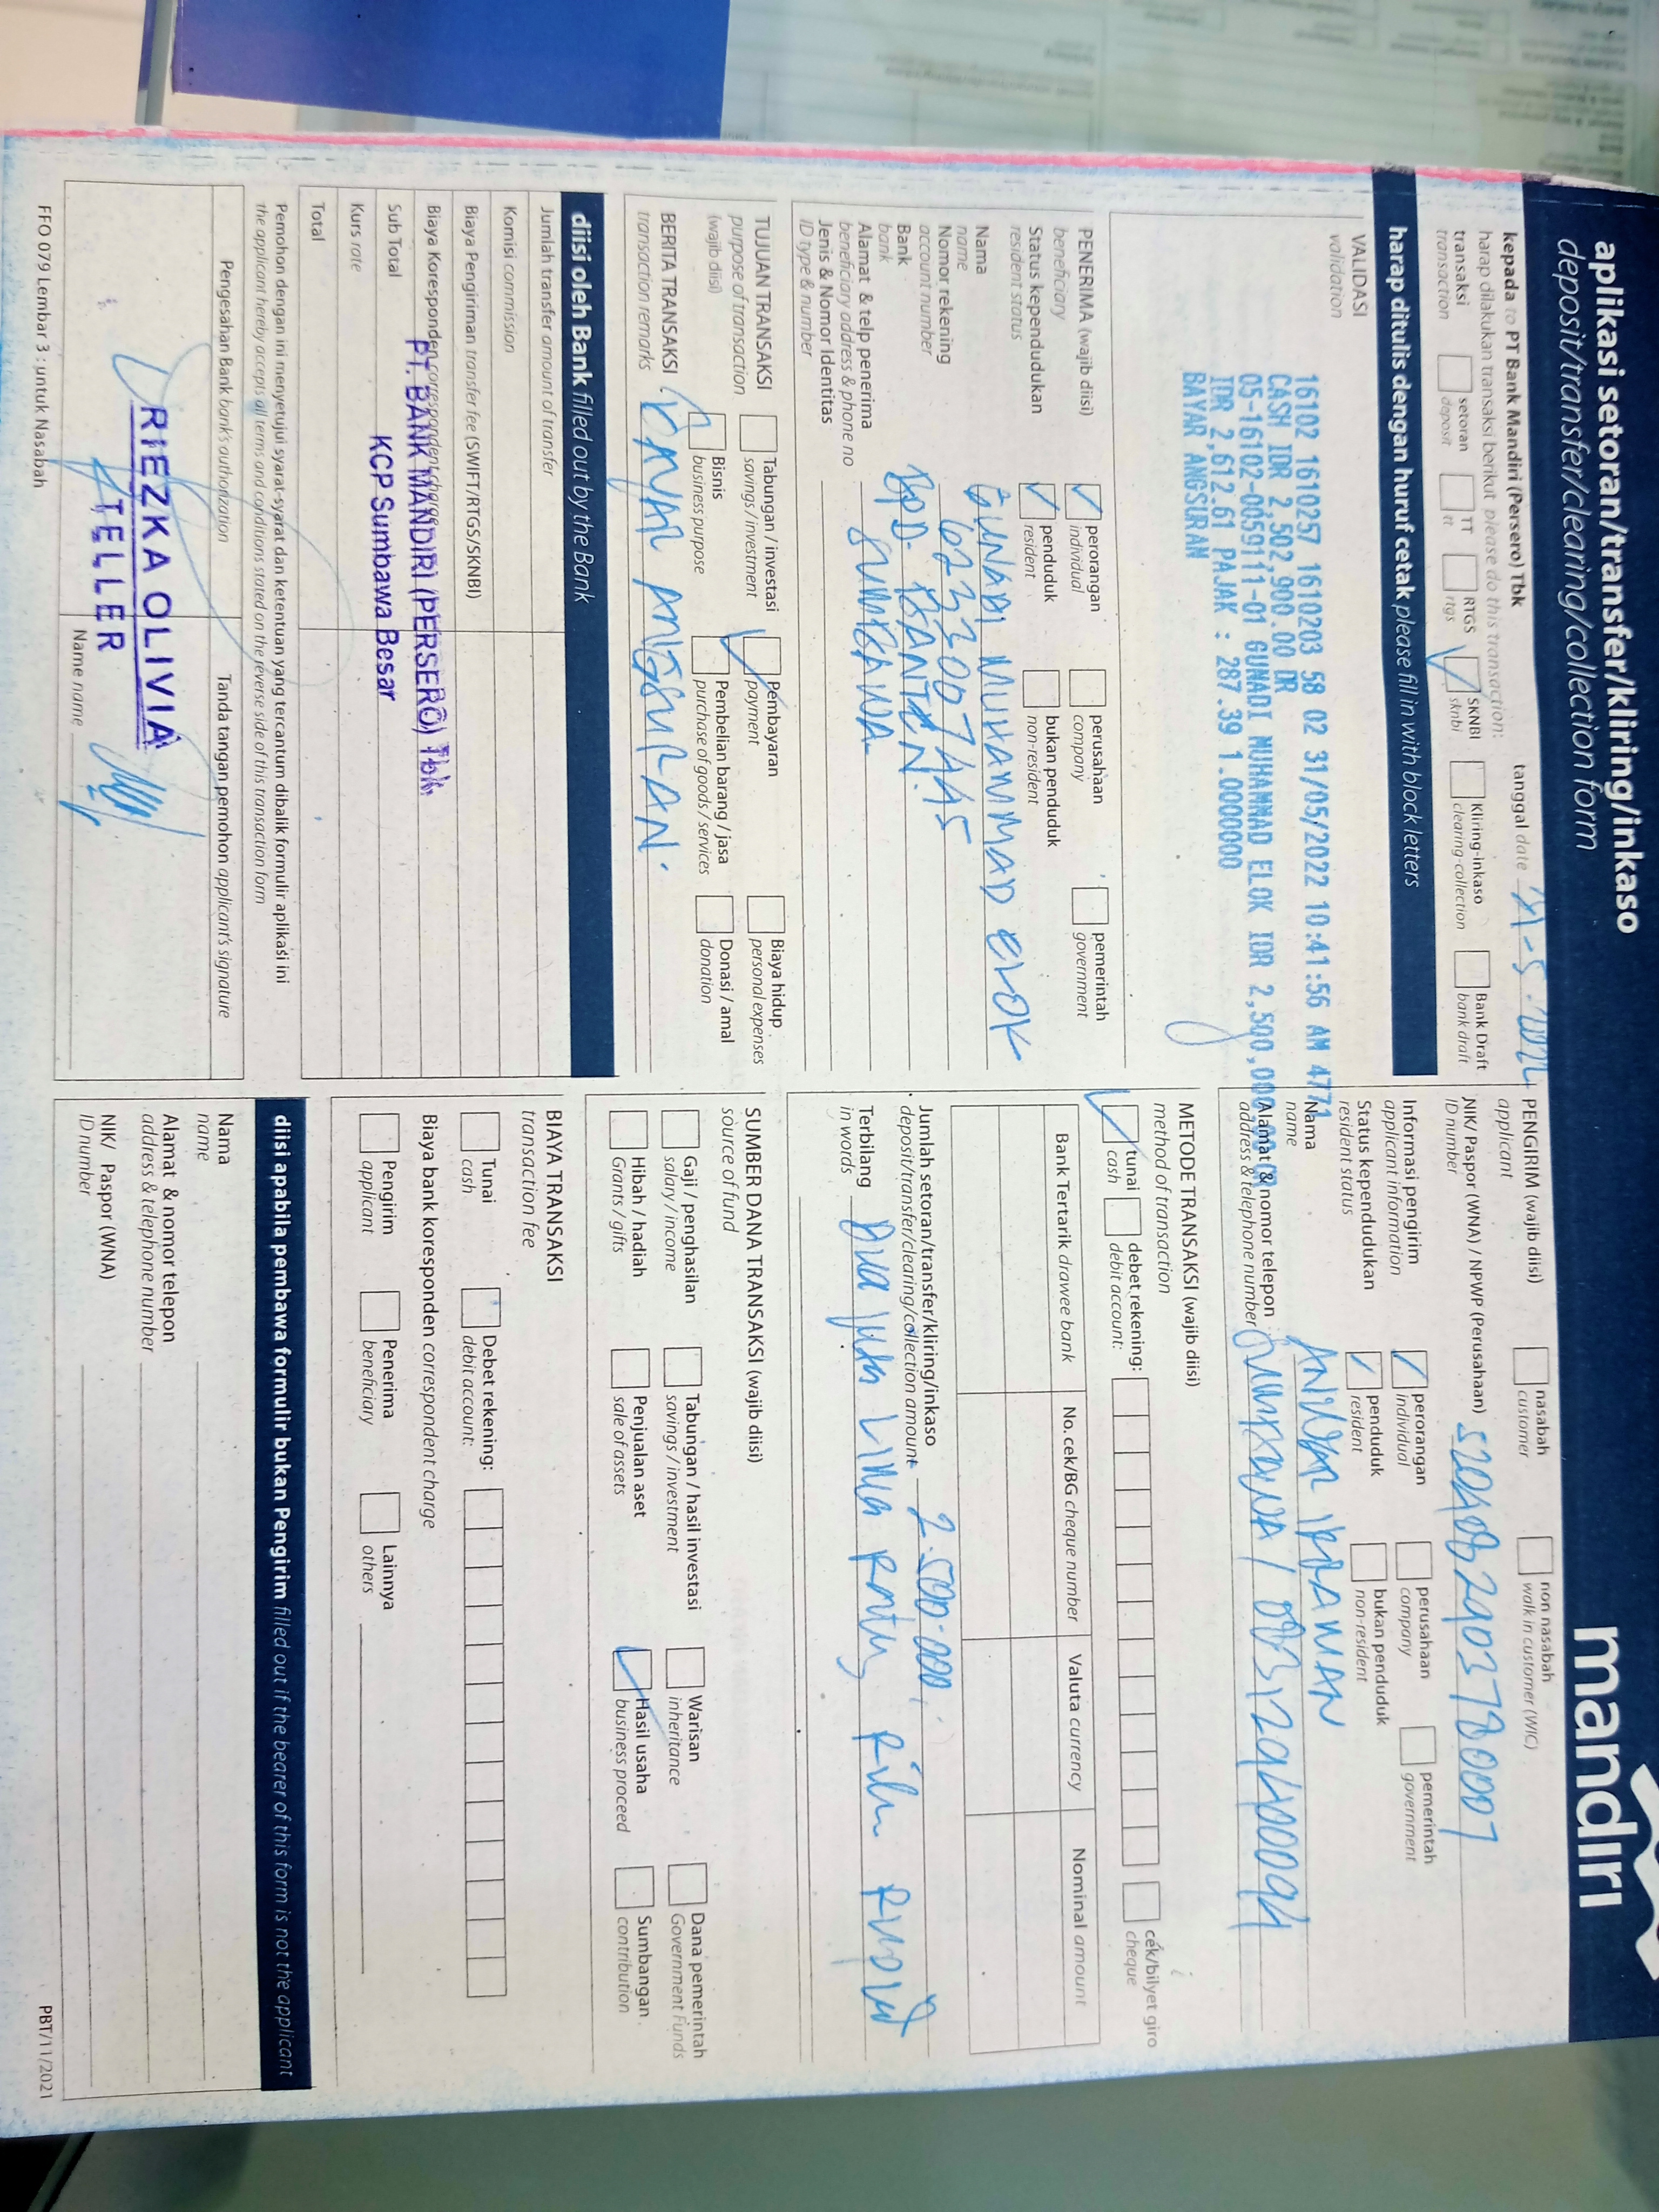 aplikasi setoran/transfer/kliring/inkaso
deposit/transfer/clearing/collection form
mandiri
kepada to PT Bank Mandiri (Persero) Tbk
tanggal date
harap dilakukan transaksi berikut please do this transaction:
transaksi
transaction
setoran
deposit
TT
tt
RTGS
rtgs
SKNBI
sknbi
Kliring-inkaso
clearing-collection
Bank Draft
bank draft
harap ditulis dengan huruf cetak please fill in with block letters
VALIDASI
validation
16102 1610257 1610203 58 02 31/05/2022 10:41:56 AM 4771
CASH IDR 2,502,900.00 DR
05-16102-0059111-01 GUNADI MUHAMMAD ELOK IDR 2,500,000.00 CR
IDR 2,612.61 PAJAK : 287.39 1.0000000
BAYAR ANGSURAN
PENERIMA (wajib diisi)
beneficiary
perorangan
individual
perusahaan
company
pemerintah
government
Status kependudukan
resident status
penduduk
resident
bukan penduduk
non-resident
Nama
name
GUNADI MUHAMMAD ELOK
Nomor rekening
account number
Bank
bank
BPD. BANTEN
Alamat & telp penerima
beneficiary address & phone no
SUMBAWA
Jenis & Nomor Identitas
ID type & number
TUJUAN TRANSAKSI
purpose of transaction
(wajib diisi)
Tabungan / investasi
savings / investment
Pembayaran
payment
Biaya hidup
personal expenses
Bisnis
business purpose
Pembelian barang / jasa
purchase of goods / services
Donasi / amal
donation
BERITA TRANSAKSI
transaction remarks
BAYAR ANGSURAN.
diisi oleh Bank filled out by the Bank
Jumlah transfer amount of transfer
Komisi commission
Biaya Pengiriman transfer fee (SWIFT/RTGS/SKNBI)
Biaya Koresponden correspondent charge
PT. BANK MANDIRI (PERSERO) Tbk.
Sub Total
KCP Sumbawa Besar
Kurs rate
Total
Pemohon dengan ini menyetujui syarat-syarat dan ketentuan yang tercantum dibalik formulir aplikasi ini
the applicant hereby accepts all terms and conditions stated on the reverse side of this transaction form
Pengesahan Bank bank's authorization
Tanda tangan pemohon applicant's signature
RIEZKA OLIVIA
TELLER
Name name
FFO 079 Lembar 3 : untuk Nasabah
PENGIRIM (wajib diisi)
applicant
nasabah
customer
non nasabah
walk in customer (WIC)
NIK/ Paspor (WNA) / NPWP (Perusahaan)
ID number
5204082903780007
Informasi pengirim
applicant information
perorangan
individual
perusahaan
company
pemerintah
government
Status kependudukan
resident status
penduduk
resident
bukan penduduk
non-resident
Nama
name
ANWAR IRAWAN
Alamat & nomor telepon
address & telephone number
SUMBAWA /
METODE TRANSAKSI (wajib diisi)
method of transaction
tunai
cash
debet rekening:
debit account:
cek/bilyet giro
cheque
Bank Tertarik drawee bank
No. cek/BG cheque number
Valuta currency
Nominal amount
Jumlah setoran/transfer/kliring/inkaso
deposit/transfer/clearing/collection amount
2.500.000,
Terbilang
in words
Dua juta Lima Ratus Ribu Rupiah
SUMBER DANA TRANSAKSI (wajib diisi)
source of fund
Gaji / penghasilan
salary / income
Tabungan / hasil investasi
savings / investment
Warisan
inheritance
Dana pemerintah
Government Funds
Hibah / hadiah
Grants / gifts
Penjualan aset
sale of assets
Hasil usaha
business proceed
Sumbangan
contribution
BIAYA TRANSAKSI
transaction fee
Tunai
cash
Debet rekening:
debit account:
Biaya bank koresponden correspondent charge
Pengirim
applicant
Penerima
beneficiary
Lainnya
others
diisi apabila pembawa formulir bukan Pengirim filled out if the bearer of this form is not the applicant
Nama
name
Alamat & nomor telepon
address & telephone number
NIK/ Paspor (WNA)
ID number
PBT/11/2021